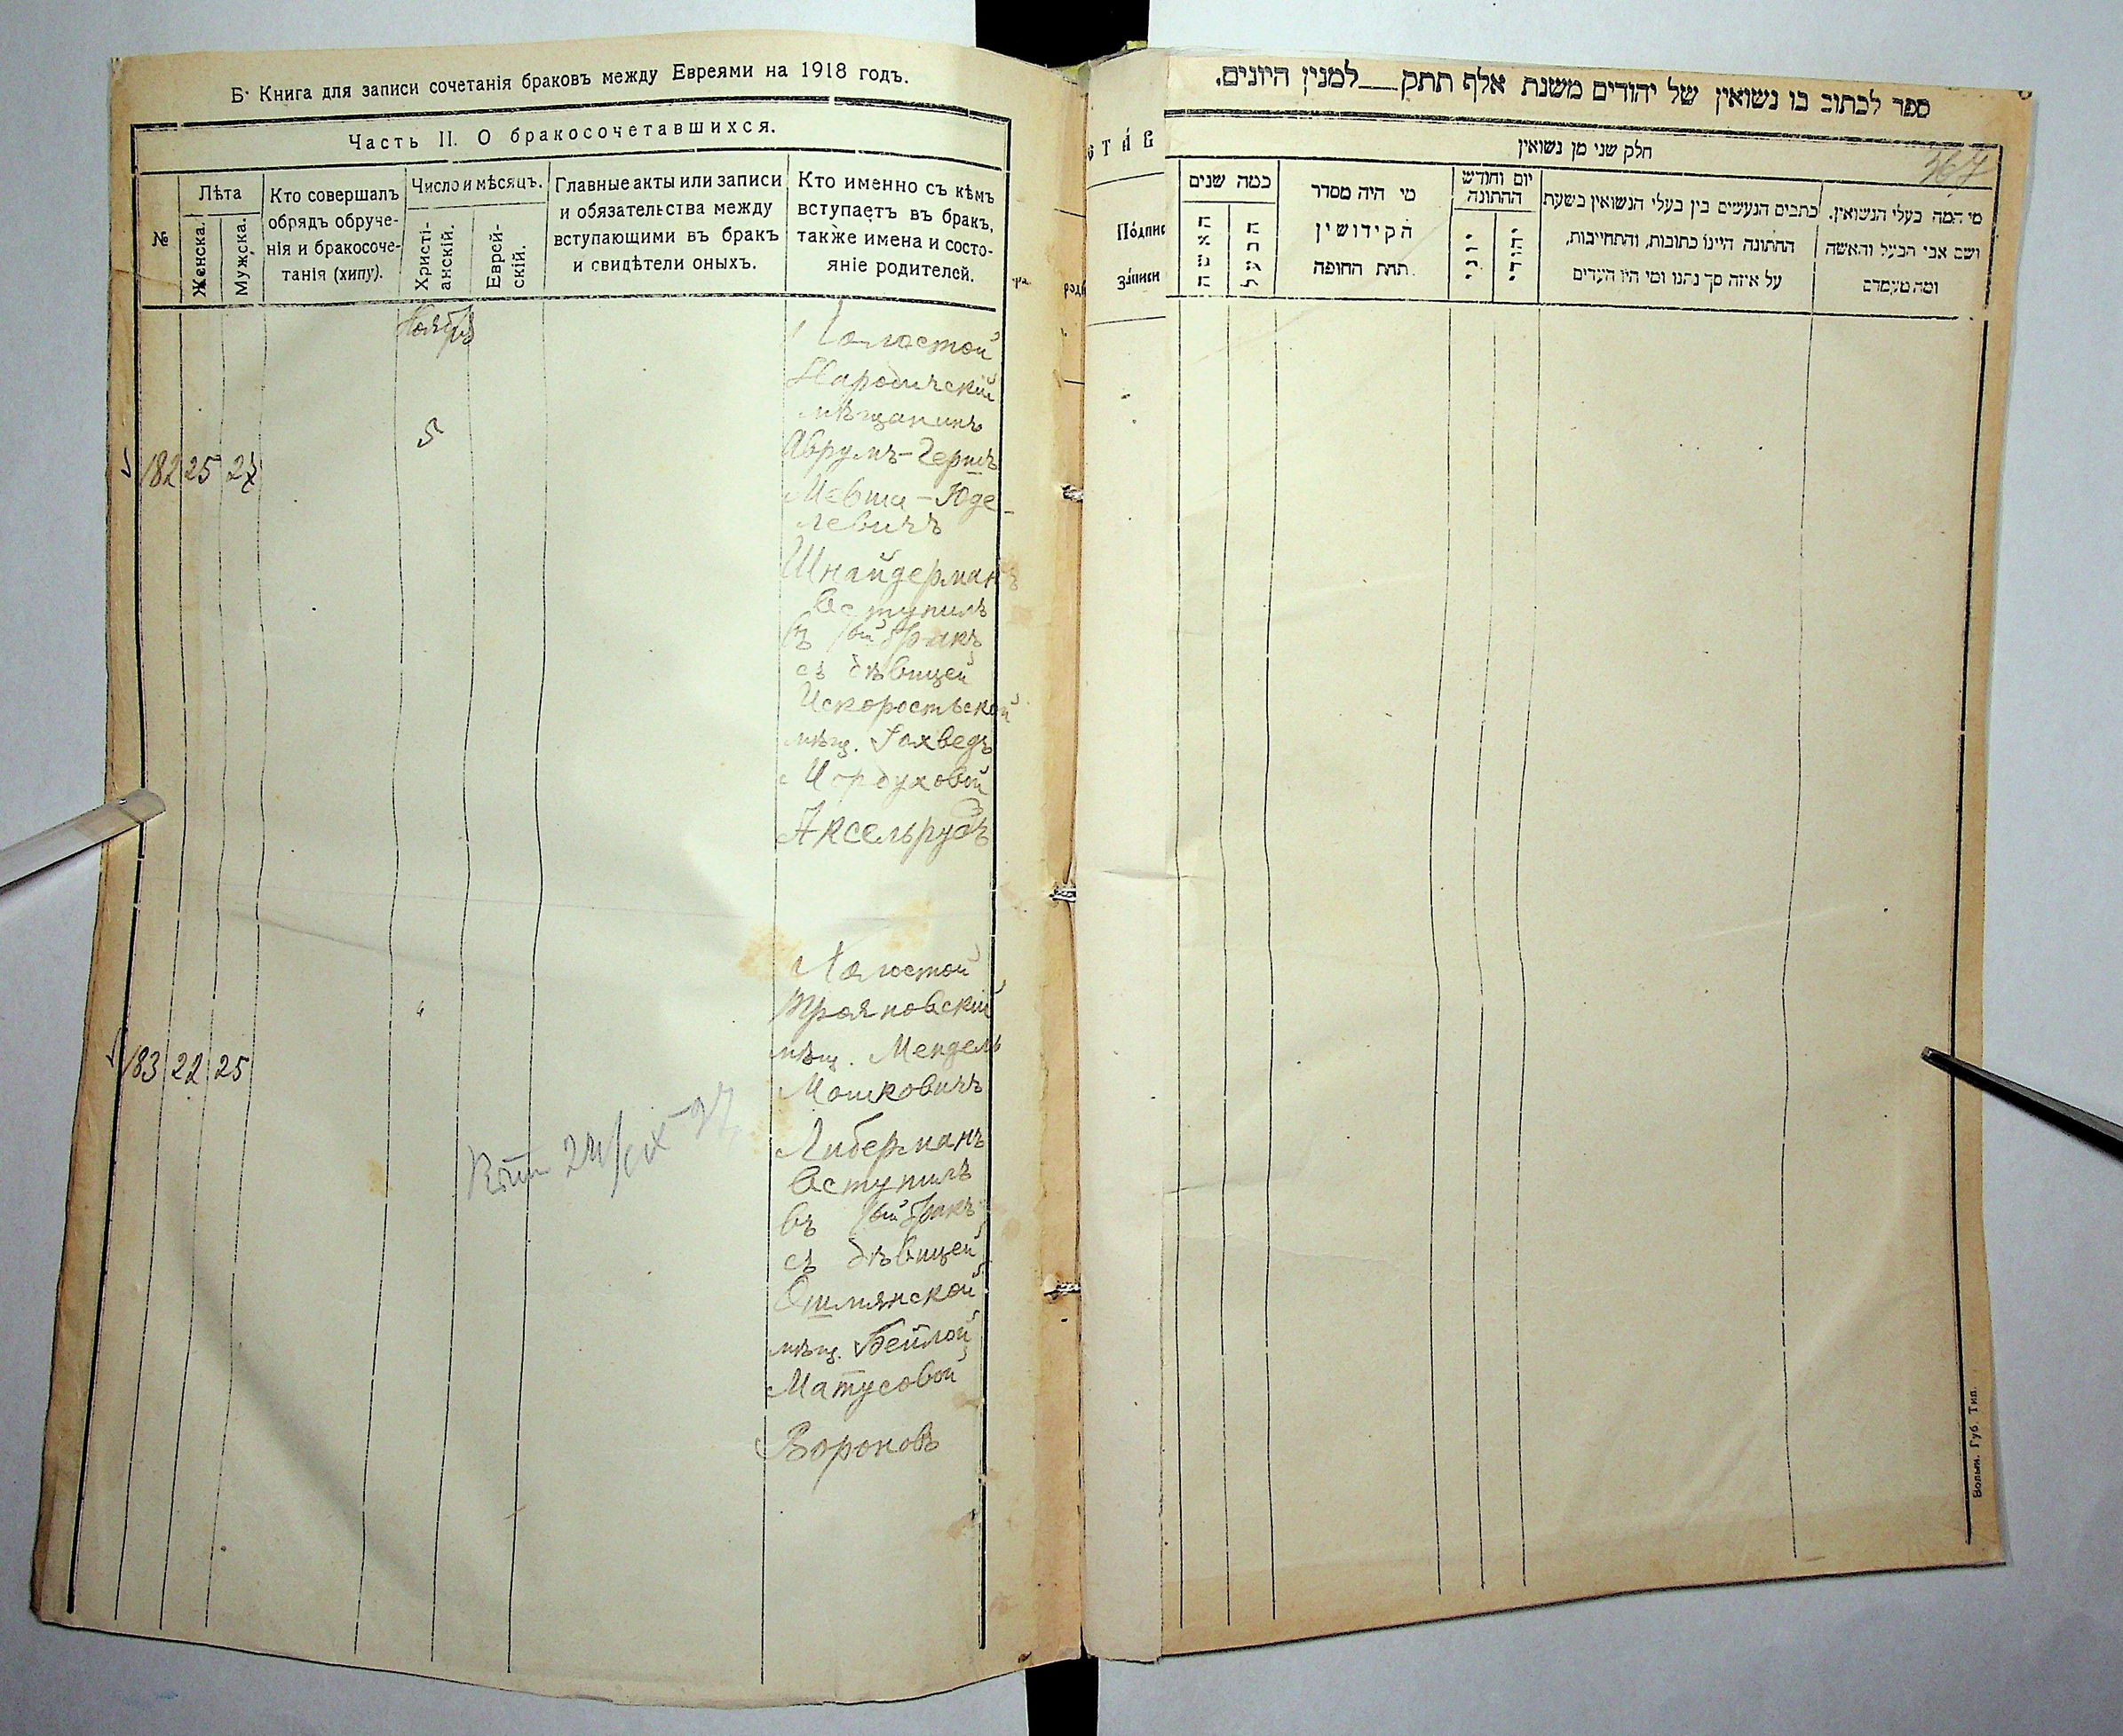 Б. Книга для записи сочетанія браковъ между Евреями на 1918 годъ.
Часть II. О бракосочетавшихся.
№
Лѣта
Женска.
Мужска.
Кто совершалъ
обрядъ обруче-
нія и бракосоче-
танія (хипу).
Число и мѣсяцъ.
Христі-
анскій.
Еврей-
скій.
Главные акты или записи
и обязательства между
вступающими въ бракъ
и свидѣтели оныхъ.
Кто именно съ кѣмъ
вступаетъ въ бракъ,
также имена и состо-
яніе родителей.
Ноябрь
5
182 25
Холостой
Народичскій
мѣщанинъ
Абрумъ-Гершъ
Мевша-Юде-
левичъ
Шнайдерманъ
вступилъ
въ 1ый бракъ
съ дѣвицей
Искоростьской
мѣщ. Іохведъ
Мордуховой
Аксельрудъ
"
183 22 25
Холостой
Трояновскій
мѣщ. Мендель
Мошковичъ
Либерманъ
вступилъ
въ 1ый бракъ
съ дѣвицей
Ошмянской
мѣщ. Бейлой
Матусовой
Вороновъ
ספר לכתוב בו נשואין של יהודים משנת אלף תתק למנין היונים.
חלק שני מן נשואין
כמה שנים
האשה
הבעל
מי היה מסדר
הקידושין
תחת החופה
יום וחודש
החתונה
יוני
יהודי
כתבים הנעשים בין בעלי הנשואין בשעת
החתונה היינו כתובות, והתחייבות,
על איזה סך נתנו ומי היו העדים
מי המה בעלי הנשואין.
ושם אבי הבעל והאשה
ומה מעמדם
Подпис
записи
Волын. Губ. Тип.